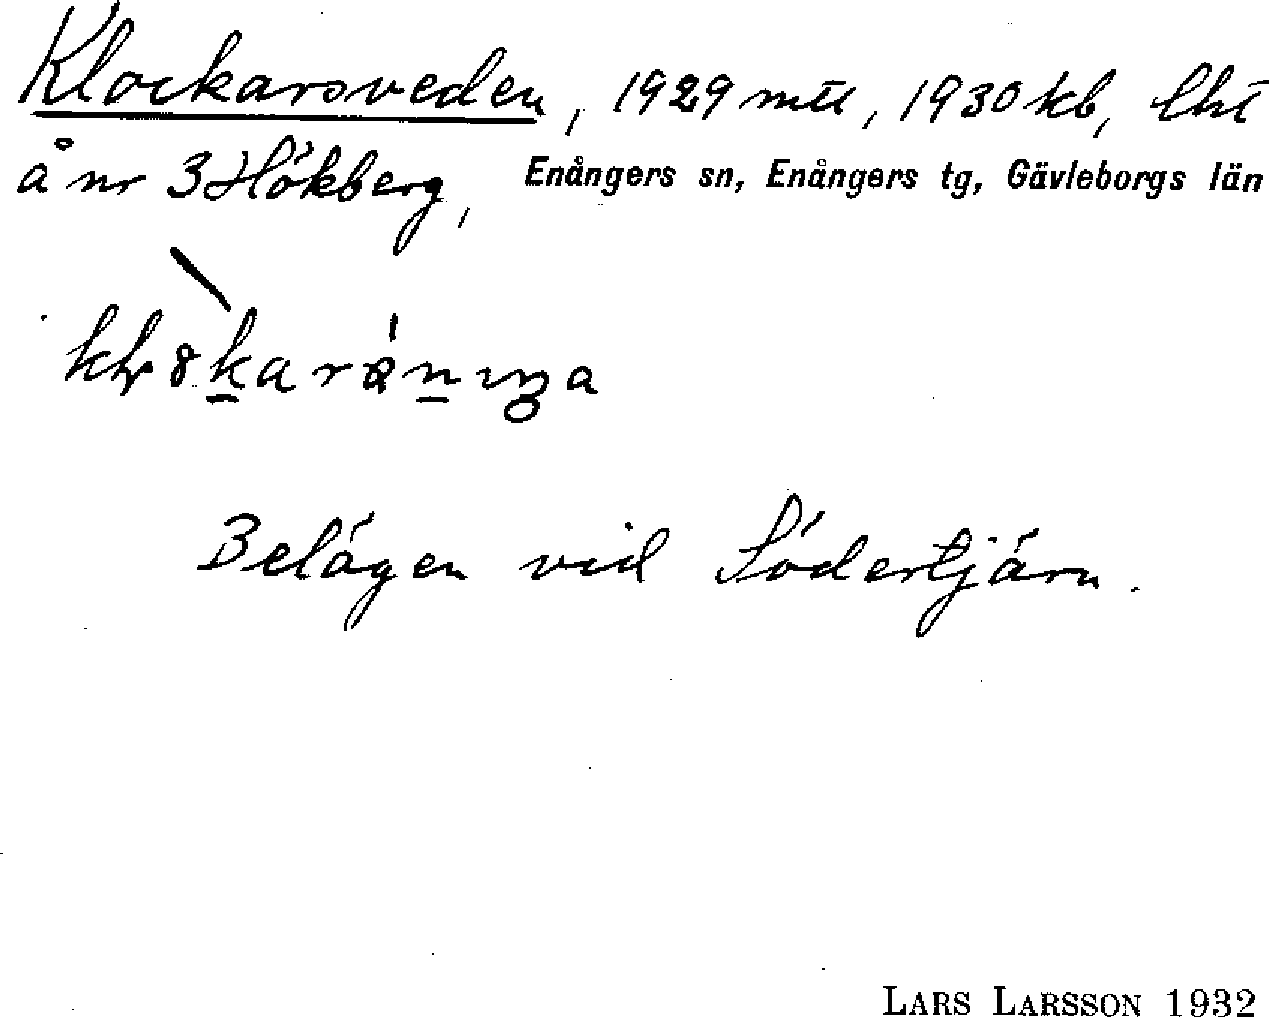 Klockarsveden, 1929 mtl, 1930 kb, lht
å nr 3 Hökberg, Enångers sn, Enångers tg, Gävleborgs län
Belägen vid Södertjärn.
LARS LARSSON 1932